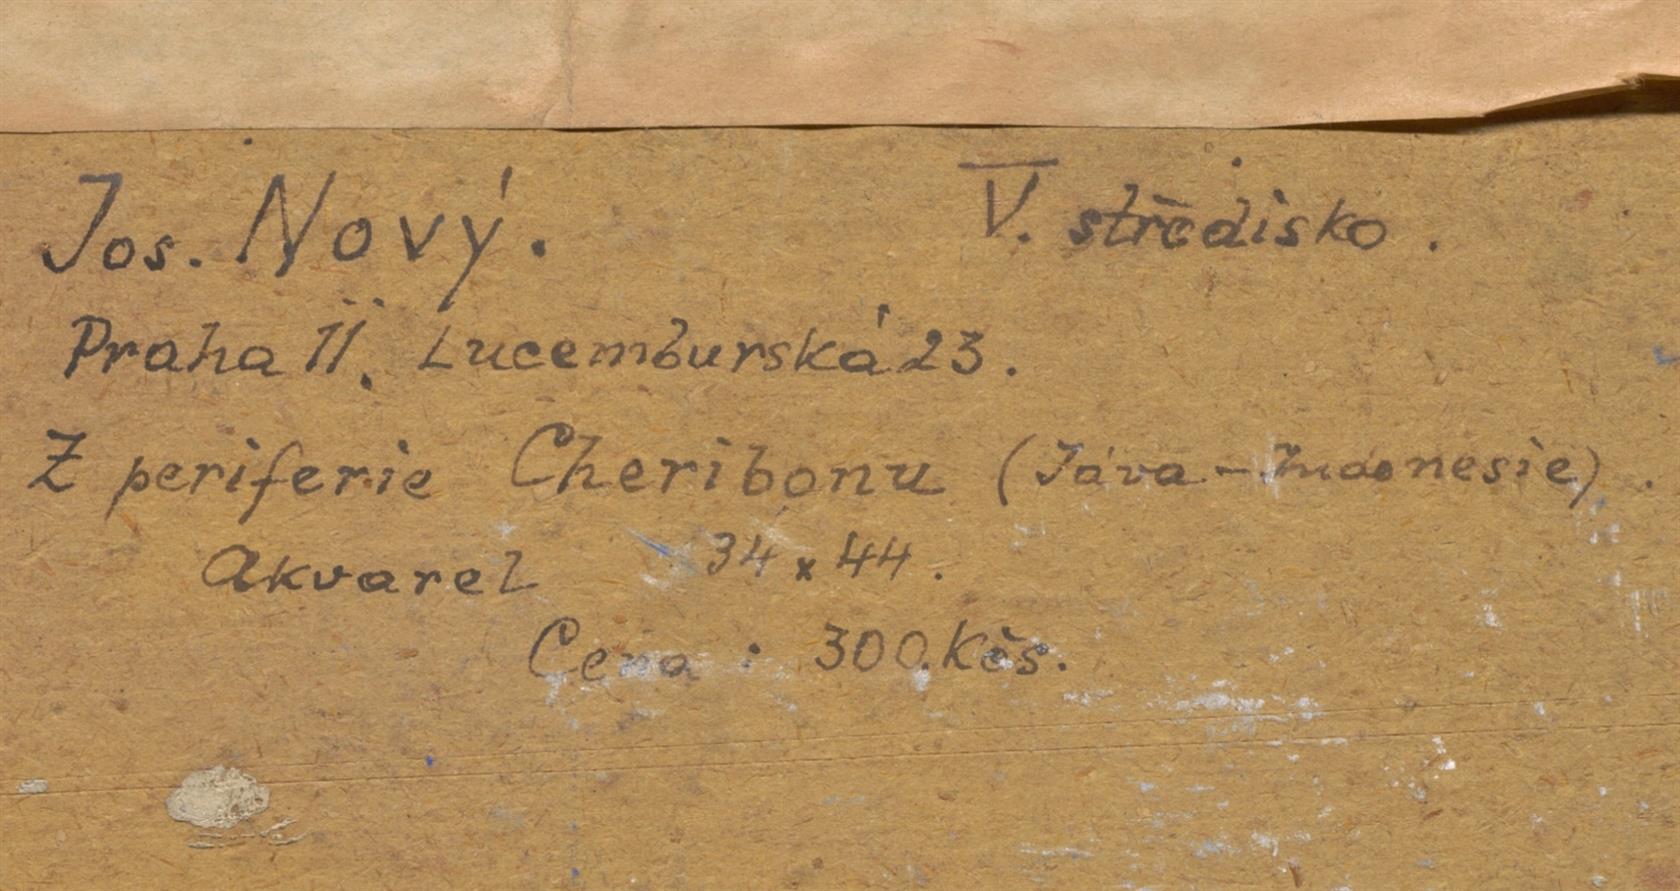 Jos. Nový. V. středisko.
Praha II. Lucemburská 23.
Z periferie Cheribonu (Jáva - Indonesie).
Akvarel 34 x 44.
Cena : 300 Kčs.